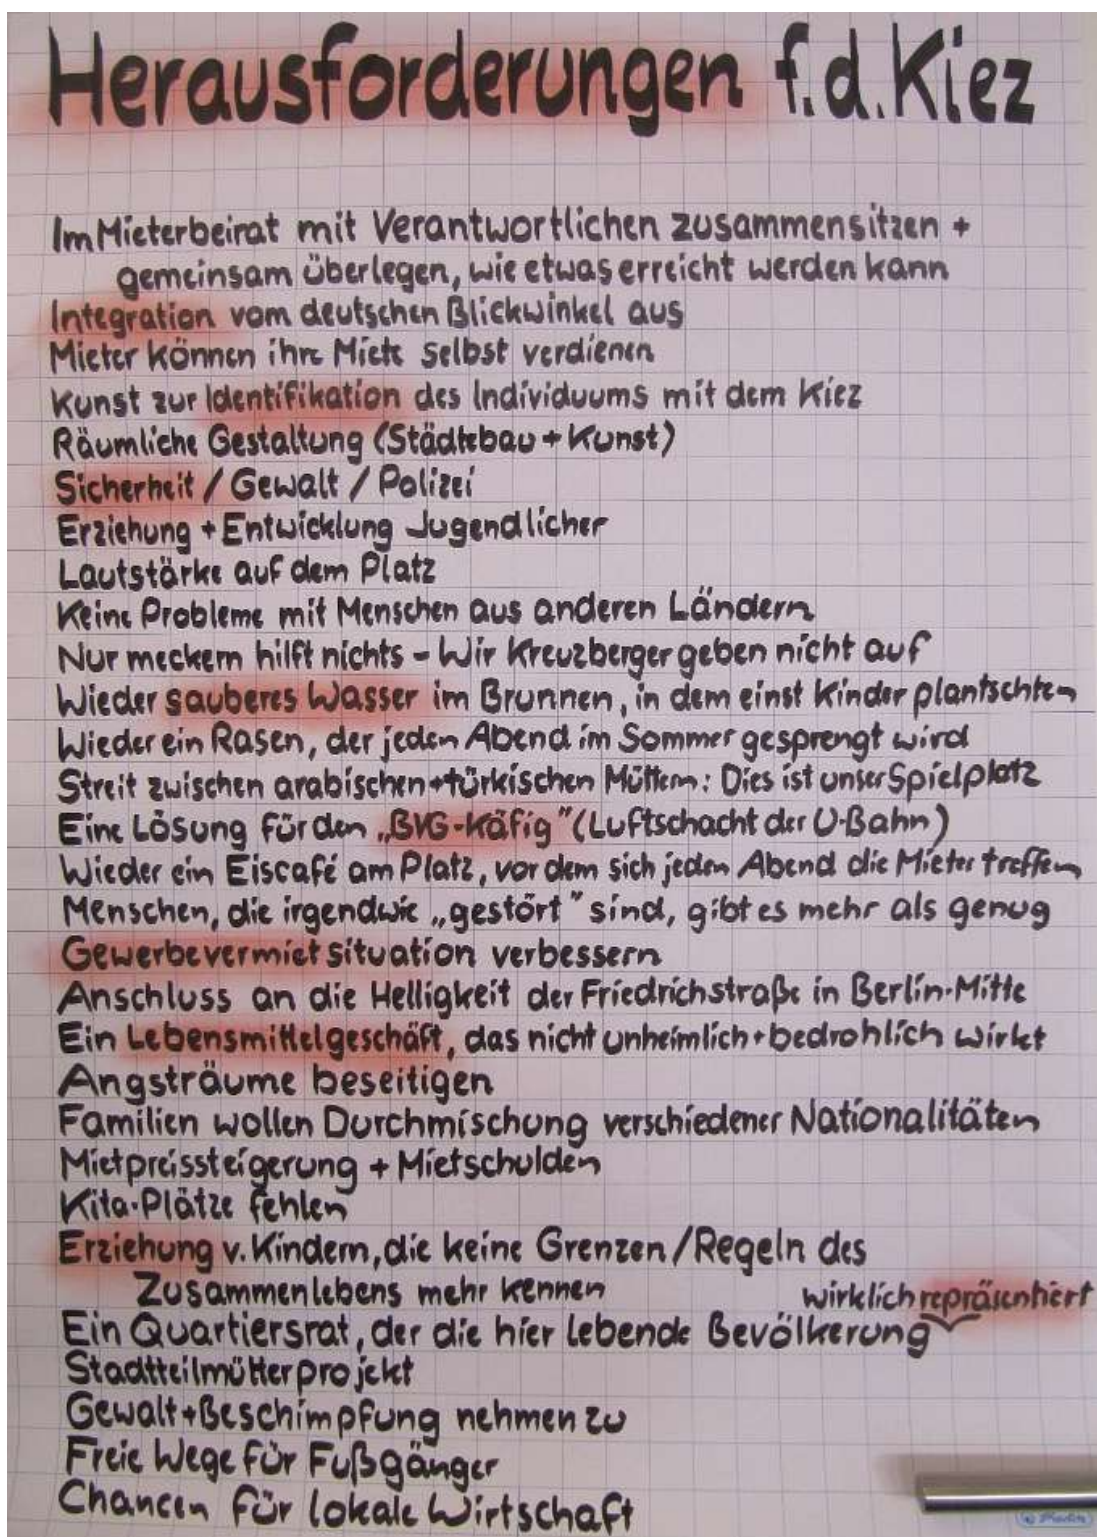 Herausforderungen f.d. Kiez
Im Mieterbeirat mit Verantwortlichen zusammensitzen +
gemeinsam überlegen, wie etwas erreicht werden kann
Integration vom deutschen Blickwinkel aus
Mieter können ihre Miete selbst verdienen
Kunst zur Identifikation des Individuums mit dem Kiez
Räumliche Gestaltung (Städtebau + Kunst)
Sicherheit / Gewalt / Polizei
Erziehung + Entwicklung Jugendlicher
Lautstärke auf dem Platz
Keine Probleme mit Menschen aus anderen Ländern
Nur meckern hilft nichts - Wir Kreuzberger geben nicht auf
Wieder sauberes Wasser im Brunnen, in dem einst Kinder plantschten
Wieder ein Rasen, der jeden Abend im Sommer gesprengt wird
Streit zwischen arabischen + türkischen Müttern: Dies ist unser Spielplatz
Eine Lösung für den „BVG-Käfig" (Luftschacht der U-Bahn)
Wieder ein Eiscafé am Platz, vor dem sich jeden Abend die Mieter treffen
Menschen, die irgendwie „gestört" sind, gibt es mehr als genug
Gewerbevermietsituation verbessern
Anschluss an die Helligkeit der Friedrichstraße in Berlin-Mitte
Ein Lebensmittelgeschäft, das nicht unheimlich + bedrohlich wirkt
Angsträume beseitigen
Familien wollen Durchmischung verschiedener Nationalitäten
Mietpreissteigerung + Mietschulden
Kita-Plätze fehlen
Erziehung v. Kindern, die keine Grenzen / Regeln des
Zusammenlebens mehr kennen
wirklich repräsentiert
Ein Quartiersrat, der die hier lebende Bevölkerung
Stadtteilmütterprojekt
Gewalt + Beschimpfung nehmen zu
Freie Wege für Fußgänger
Chancen für lokale Wirtschaft